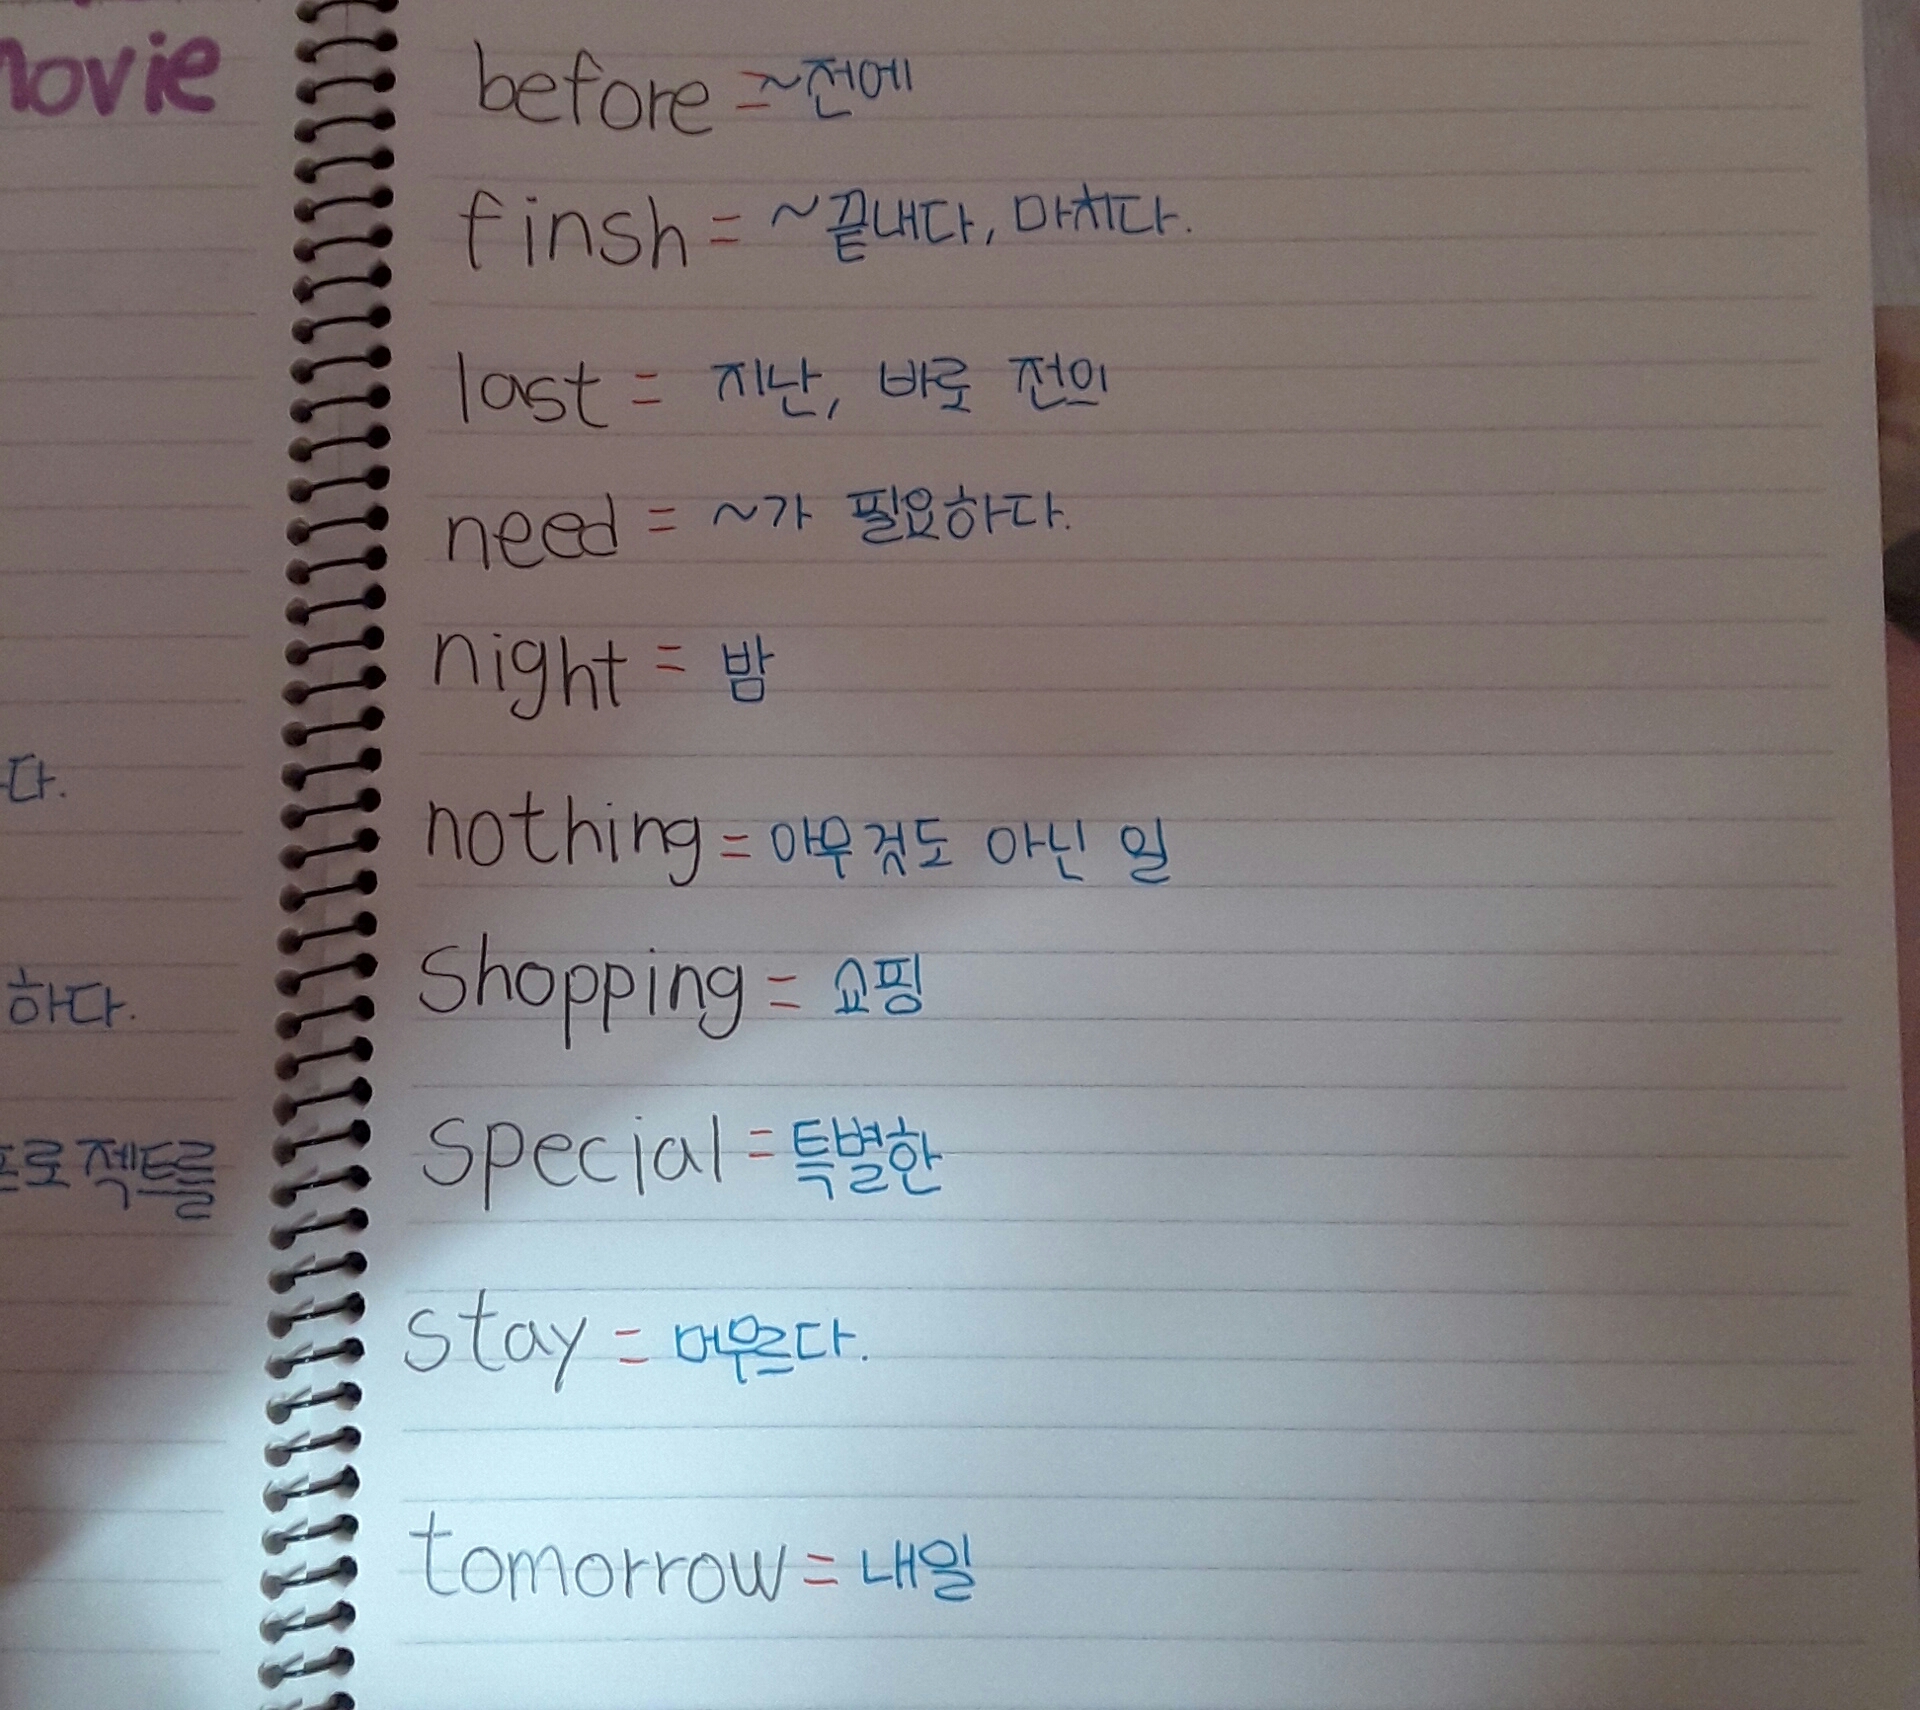 movie
before = ~전에
finsh = ~끝내다, 마치다.
last = 지난, 바로 전의
need = ~가 필요하다.
night = 밤
다.
nothing = 아무것도 아닌 일
하다.
shopping = 쇼핑
프로젝트를
special = 특별한
stay = 머무르다.
tomorrow = 내일